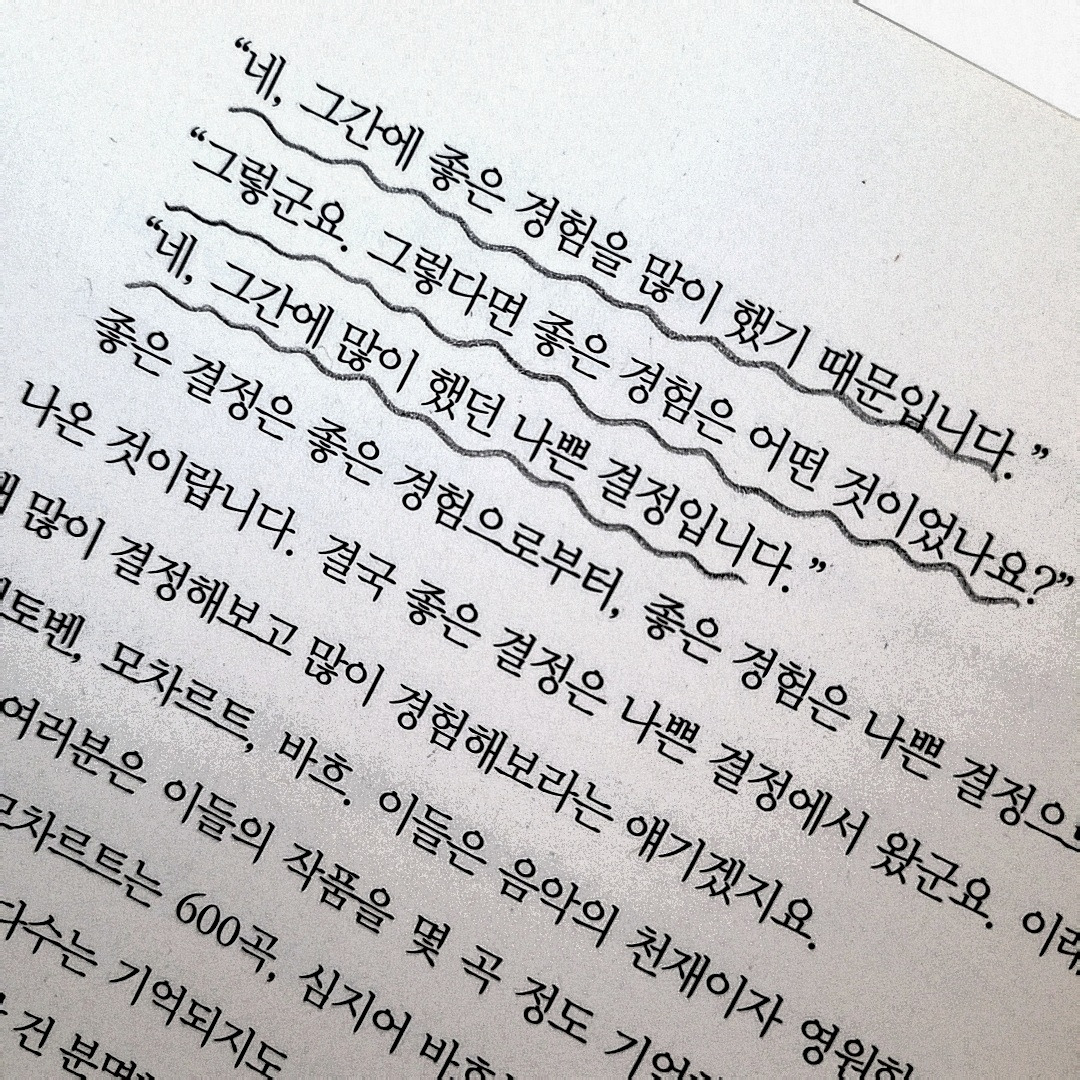 “네, 그간에 좋은 경험을 많이 했기 때문입니다.”
“그렇군요. 그렇다면 좋은 경험은 어떤 것이었나요?”
“네, 그간에 많이 했던 나쁜 결정입니다.”
좋은 결정은 좋은 경험으로부터, 좋은 경험은 나쁜
나온 것이랍니다. 결국 좋은 결정은 나쁜 결정에서 왔군요.
많이 결정해보고 많이 경험해보라는 얘기겠지요.
모차르트, 바흐. 이들은 음악의 천재이자
여러분은 이들의 작품을 몇 곡 정도
모차르트는 600곡, 심지어
기억되지도
건